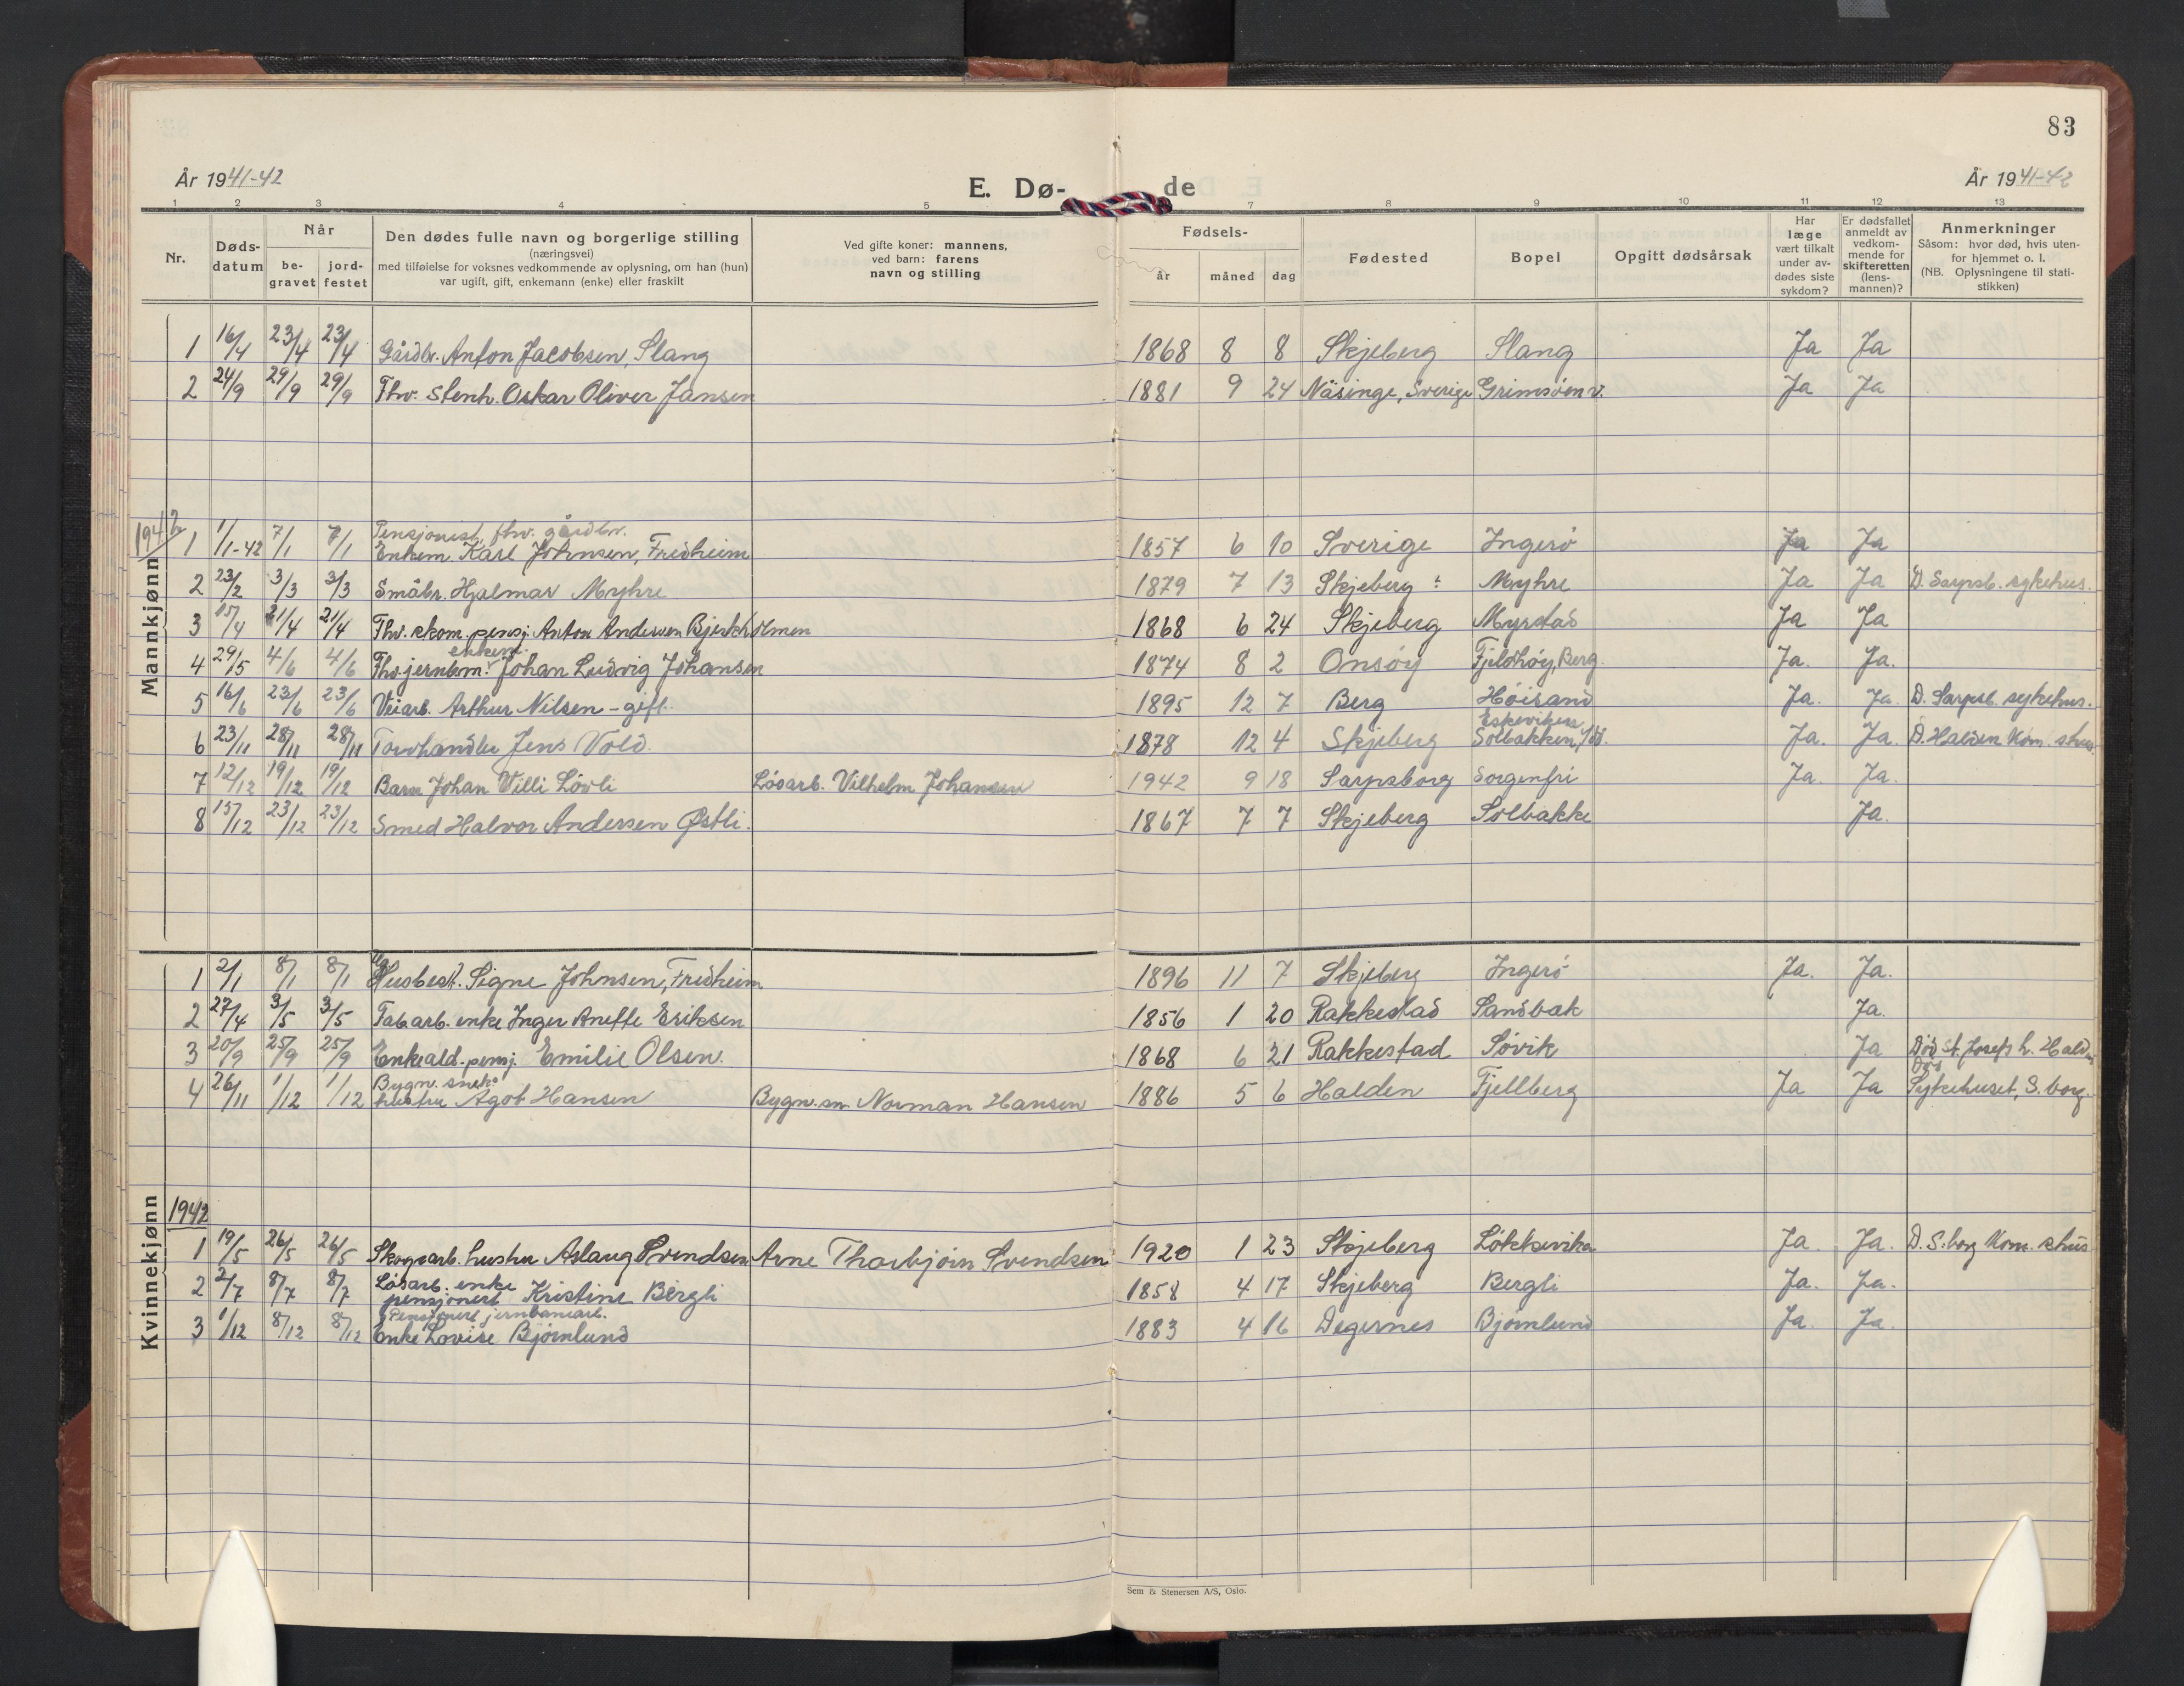 83
År 1941-42
E. Dø-
de
År 1941-42
1 2 3 4 5 7 8 9 10 11 12 13
Nr.
Døds-
datum
Når
be-
gravet
jord-
festet
Den dødes fulle navn og borgerlige stilling
(næringsvei)
med tilføielse for voksnes vedkommende av oplysning, om han (hun)
var ugift, gift, enkemann (enke) eller fraskilt
Ved gifte koner: mannens,
ved barn: farens
navn og stilling
Fødsels-
år måned dag
Fødested
Bopel
Opgitt dødsårsak
Har
læge
vært tilkalt
under av-
dødes siste
sykdom?
Er dødsfallet
anmeldt av
vedkom-
mende for
skifteretten
(lens-
mannen)?
Anmerkninger
Såsom: hvor død, hvis uten-
for hjemmet o. l.
(NB. Oplysningene til stati-
stikken)
Mannkjønn
1 16/4 23/4 23/4 Gårdbr. Anton Jacobsen, Slang 1868 8 8 Skjeberg Slang Ja Ja
2 24/9 29/9 29/9 Fhv. Stenh. Oskar Oliver Jansen 1881 9 24 Näsinge, Sverige Grimsöen v. Ja Ja
1942
Pensjonist, fhv. gårdbr.
1 1/1-42 7/1 7/1 Enkem. Karl Johnsen, Fredheim 1857 6 10 Sverige Ingerö Ja Ja
2 23/2 3/3 3/3 Småbr. Hjalmar Myhre 1879 7 13 Skjeberg Myhre Ja Ja D. Sarpsb. sykehus.
3 15/4 21/4 21/4 Fhv. skom. pensj. Anton Andersen Bjerkholmen 1868 6 24 Skjeberg Myrstad Ja Ja
enkem.
4 29/5 4/6 4/6 Fhv. jernbm. Johan Ludvig Johansen 1874 8 2 Onsöy Fjeldhöy, Berg. Ja. Ja.
5 16/6 23/6 23/6 Veiarb. Arthur Nilsen - gift. 1895 12 7 Berg Höisand Ja. Ja. D. Sarpsb. sykehus.
Eskeviken
6 23/11 28/11 28/11 Torvhandler Jens Vold. 1878 12 4 Skjeberg Solbakken, Ja. Ja. D. Halden Kom. shus.
7 12/12 19/12 19/12 Barn Johan Willi Lövli Lösarb. Vilhelm Johansen 1942 9 18 Sarpsborg Sorgenfri Ja. Ja.
8 15/12 23/12 23/12 Smed Halvor Andersen Østli. 1867 7 7 Skjeberg Solbakke Ja.
Kvinnekjønn
ug.
1 2/1 8/1 8/1 Husbest. Signe Johnsen, Fredheim 1896 11 7 Skjeberg Ingerö Ja. Ja.
2 27/4 3/5 3/5 Fab.arb. enke Inger Anette Eriksen 1856 1 20 Rakkestad Sandbak Ja.
3 20/9 25/9 25/9 Enke ald. pensj. Emilie Olsen. 1868 6 21 Rakkestad Sövik Ja Död St. Josefs h. Halden
Bygn. snek.
Död
4 26/11 1/12 1/12 hustru Agot Hansen Bygn. sn. Norman Hansen 1886 5 6 Halden Fjellberg Ja Ja Sykehuset, S. borg.
1942
1 19/5 26/5 26/5 Skogsarb. hustru Aslaug Svendsen Arne Thorbjörn Svendsen 1920 1 23 Skjeberg Lökkevika Ja Ja. D. S. borg Kom. shus
Lösarb. enke
2 2/7 8/7 8/7 pensjonert Kristine Bergli 1858 4 17 Skjeberg Bergli Ja. Ja.
Pensjonert jernbanearb.
3 1/12 8/12 8/12 Enke Lovise Björnlund 1883 4 16 Degernes Björnlund Ja. Ja.
Sem & Stenersen A/S, Oslo.